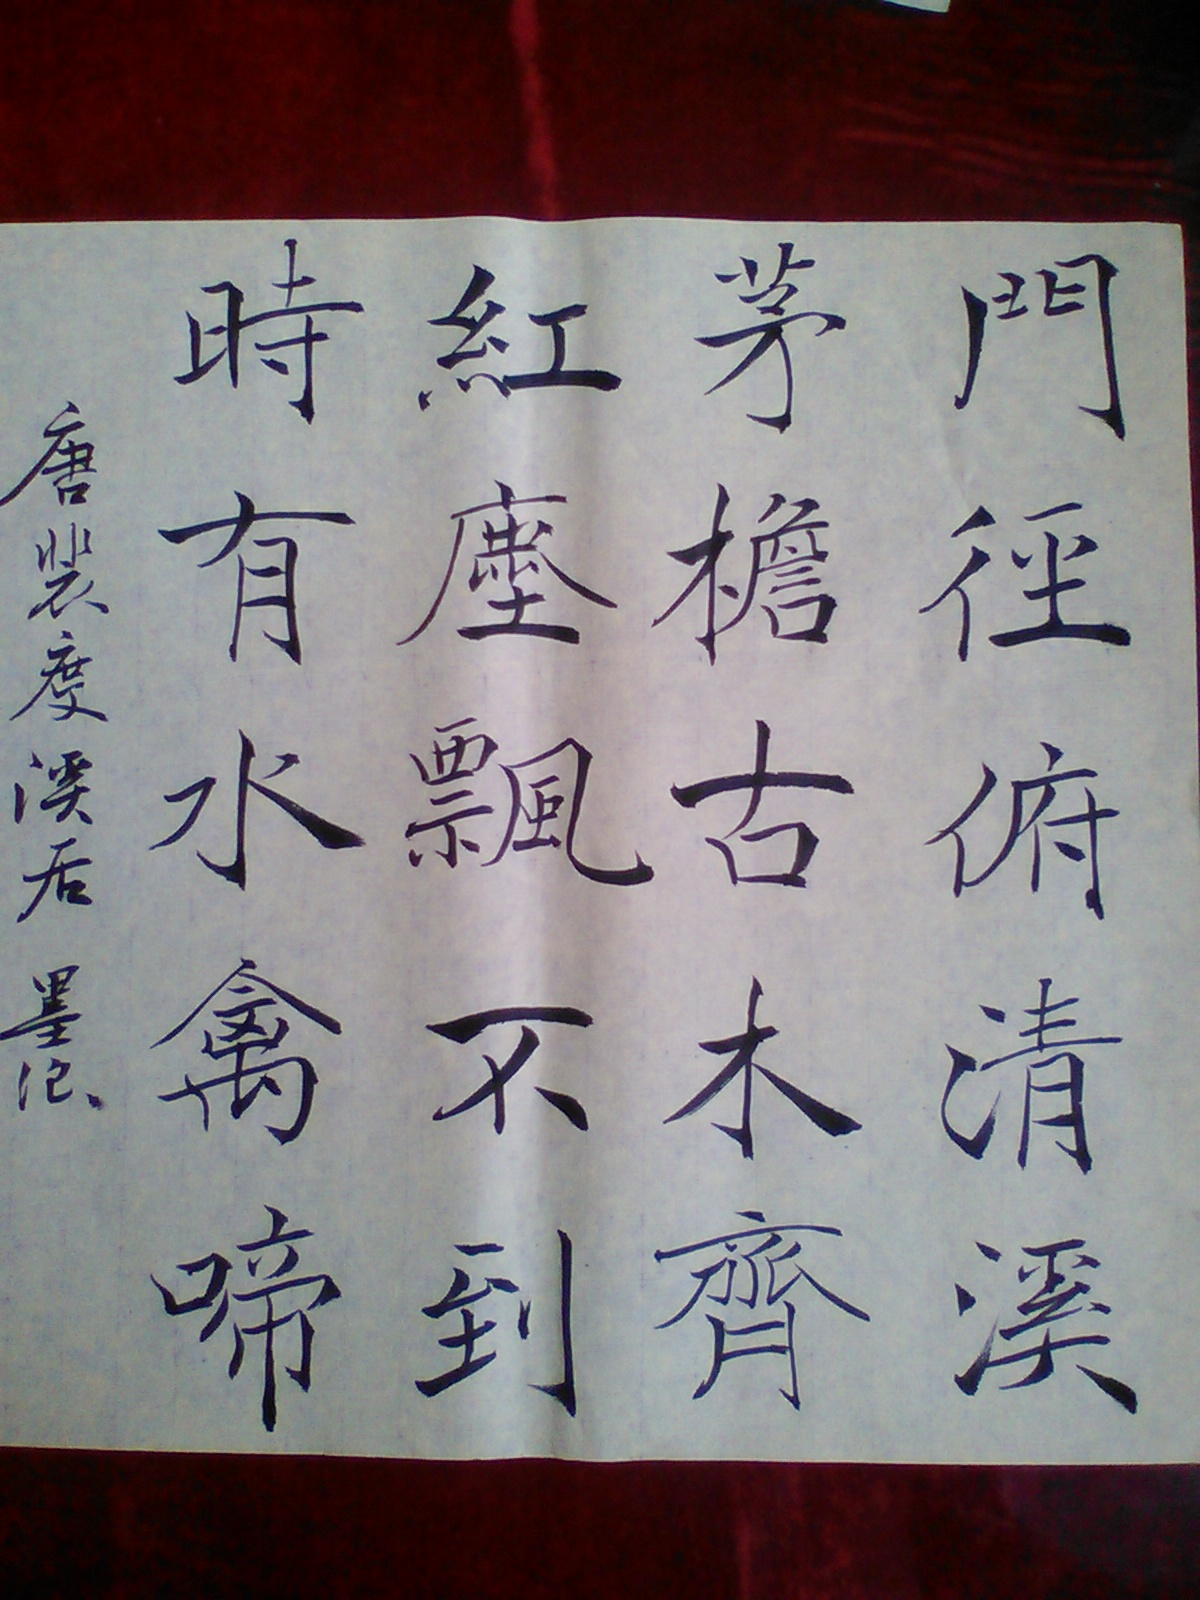 門徑俯清溪
茅檐古木齊
紅塵飄不到
時有水禽啼
唐裴度溪居 墨